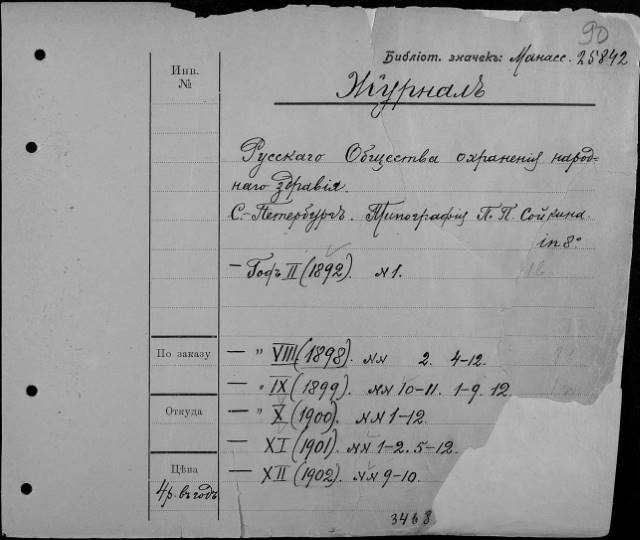 90
Библіот. значекъ: Манасс. 25842
Инв.
№
Журналъ
Русскаго Общества охраненія народ-
наго здравія.
С.-Петербургъ. Типографія П. П. Сойкина.
in 8°
— Годъ II (1892). № 1.
По заказу
— " VIII (1898). №№ 2. 4-12.
— " IX (1899). №№ 10-11. 1-9. 12.
Откуда
— " X (1900). №№ 1-12.
— XI (1901). №№ 1-2. 5-12.
Цѣна
— XII (1902). №№ 9-10.
4 р. въ годъ
3468